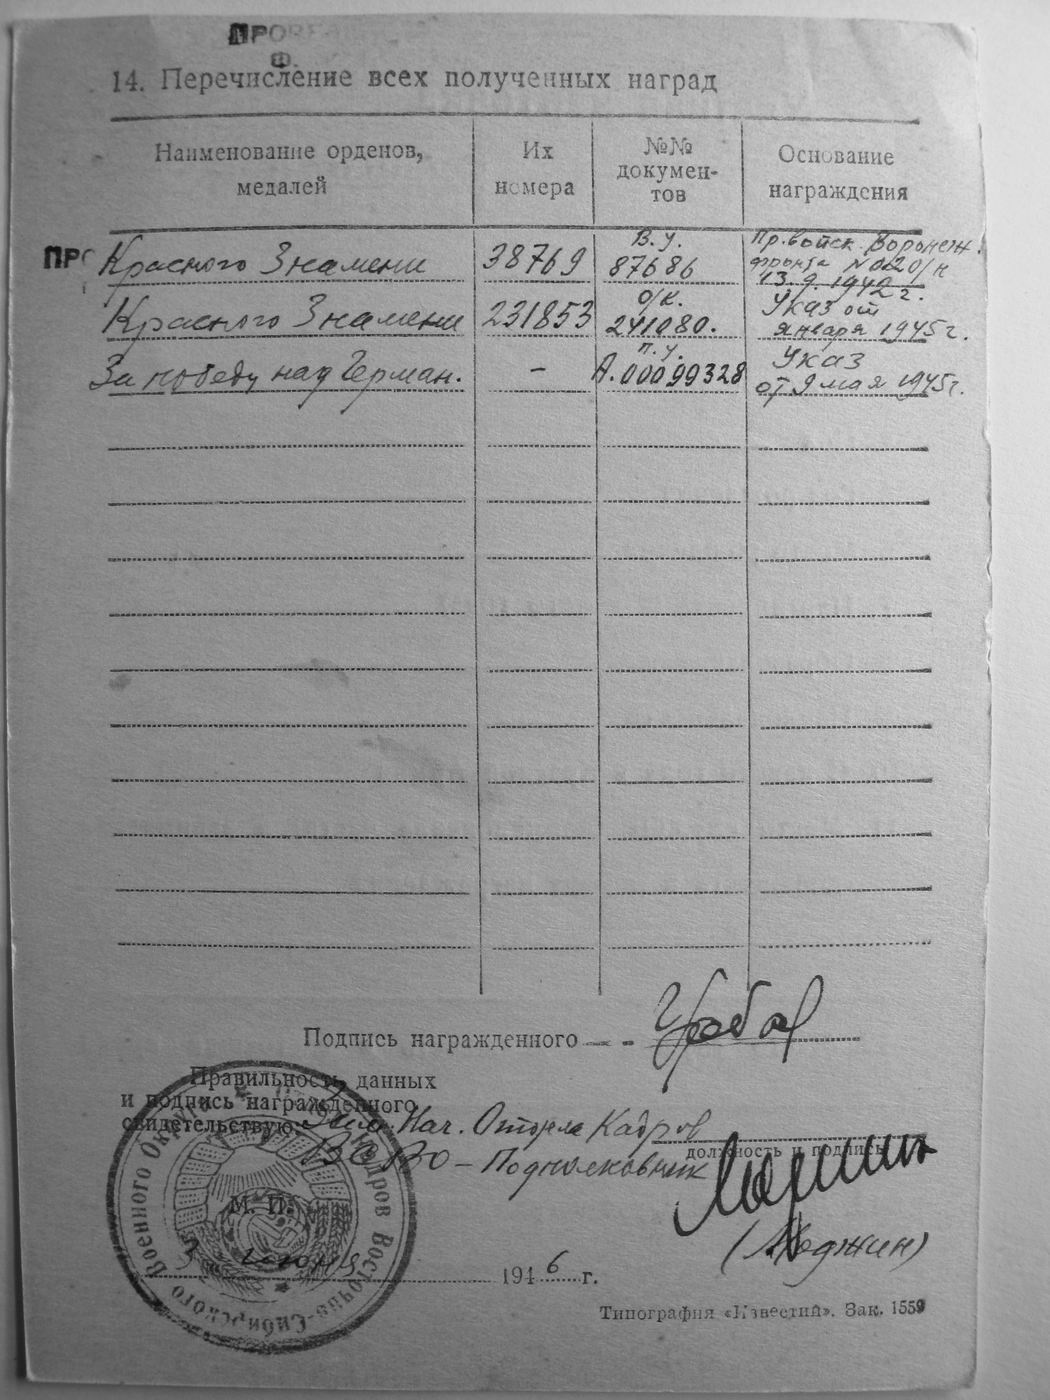 ПРОВЕ
Ф.
14. Перечисление всех полученных наград
Наименование орденов, медалей
Их номера
№№ докумен-тов
Основание награждения
ПРО
Красного Знамени 38769 В.У. 87686 Пр. войск. Воронеж. фронта N 020/н 13.9.1942 г.
Красного Знамени 231853 о/к. 241080. Указ от января 1945 г.
За победу над Герман. - п.у. А.00099328 Указ от 9 мая 1945 г.
Подпись награжденного
Правильность данных
и подпись награжденного
свидетельствую: Зам. Нач. Отдела Кадров
должность и подпись
ВСВО - Подполковник
М. П.
Кадров Восточно-Сибирского Военного Округа
3 июня 1946 г.
Типография «Известий». Зак. 1559